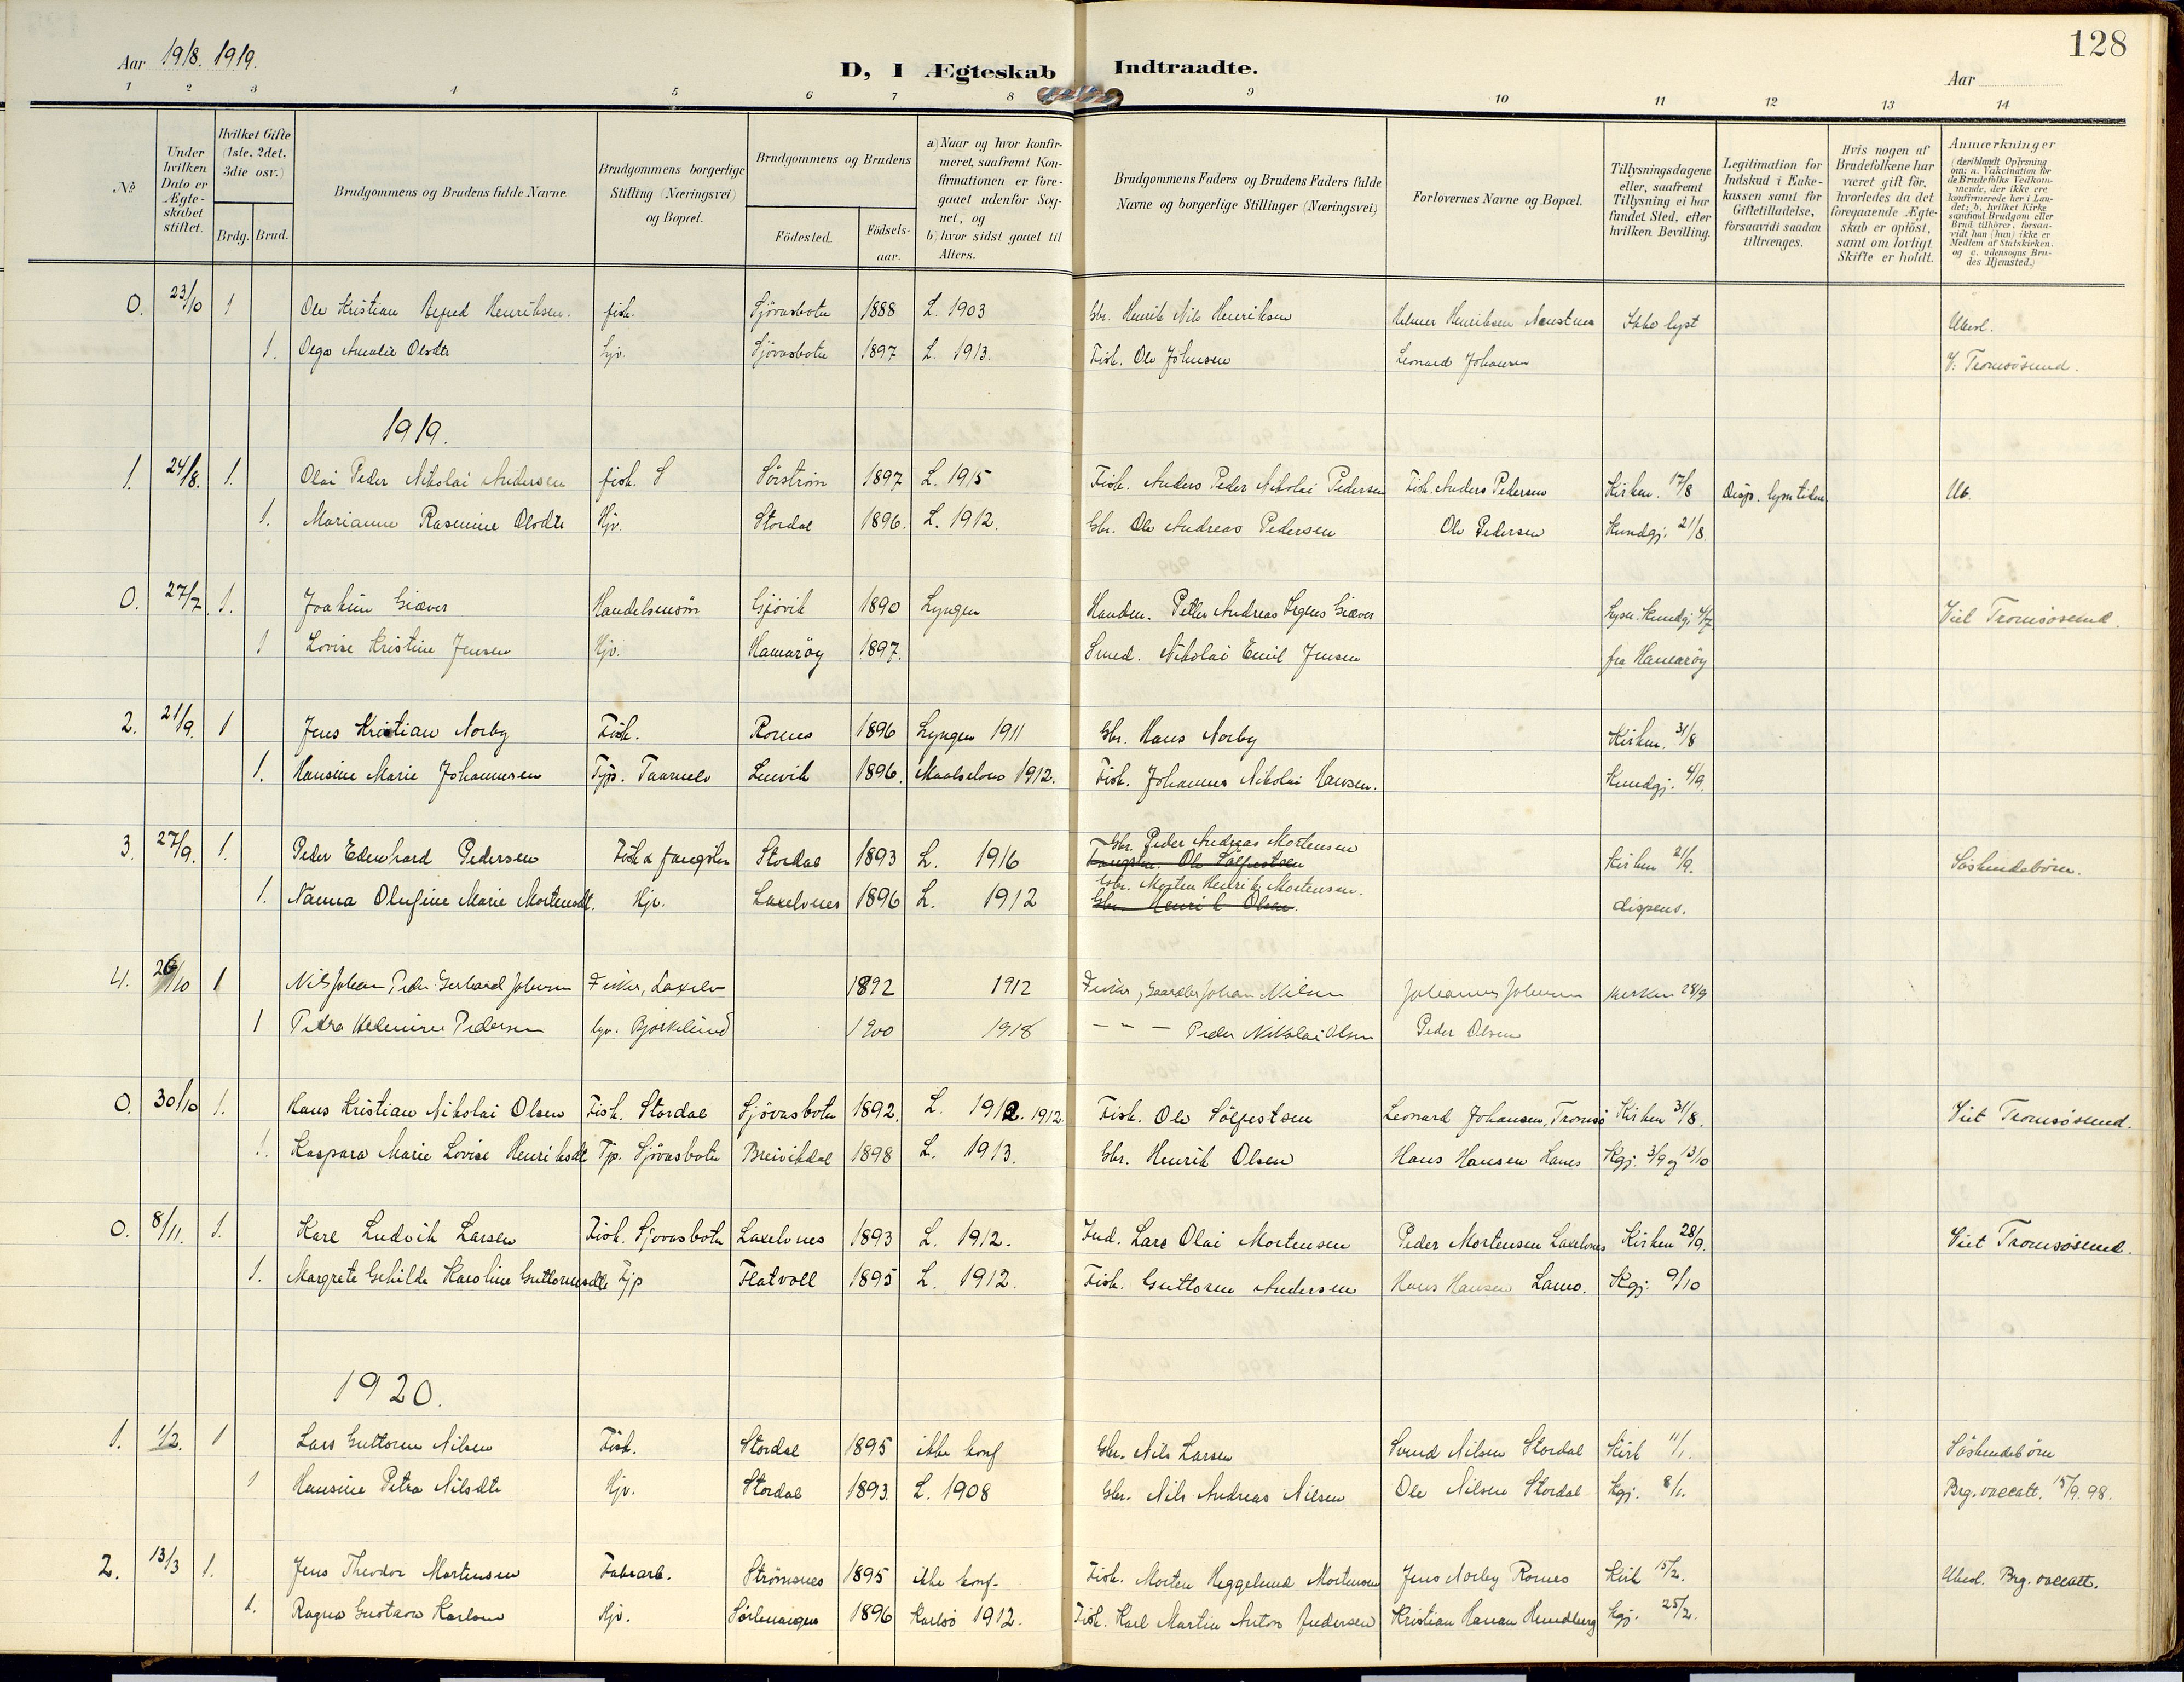 128
Aar 1918. 1919.
D, I Ægteskab Indtraadte.
Aar
1 2 3 4 5 6 7 8 9 10 11 12 13 14
No
Under hvilken Dato er Ægteskabet stiftet.
Hvilket Gifte (1ste, 2det, 3die osv.)
Brdg. Brud.
Brudgommens og Brudens fulde Navne
Brudgommens borgerlige Stilling (Næringsvei) og Bopæl.
Brudgommens og Brudens
Fødested. Fødselsaar.
a) Naar og hvor konfirmeret, saafremt Konfirmationen er foregaaet udenfor Sognet, og
b) hvor sidst gaaet til Alters.
Brudgommens Faders og Brudens Faders fulde Navne og borgerlige Stillinger (Næringsvei)
Forlovernes Navne og Bopæl.
Tillysningsdagene eller, saafremt Tillysning ei har fundet Sted, efter hvilken Bevilling.
Legitimation for Indskud i Enkekassen samt for Giftetilladelse, forsaavidt saadan tiltrænges.
Hvis nogen af Brudefolkene har været gift før, hvorledes da det foregaaende Ægteskab er opløst, samt om lovligt Skifte er holdt.
Anmærkninger (deriblandt Oplysning om: a. Vakcination for de Brudefolks Vedkommende, der ikke ere konfirmerede her i Landet; b. hvilket Kirkesamfund Brudgom eller Brud tilhører, forsaavidt han (hun) ikke er Medlem af Statskirken. og c. udensogns Brudes Hjemsted.)
0. 23/10 1 Ole Kristian Henriksen. fisk. Sjövasbotn 1888 L. 1903 Gbr. Henrik Nils Henriksen Helmer Henriksen Ikke lyst
1. Olga Amalie Olsdtr Hjv. Sjövasbotn 1897 L. 1913. Fisk. Ole Johnsen Leonard Johansen V. Tromsösund.
1919.
1. 24/8. 1. Olai Peder Nikolai Andersen fisk. S Sörström 1897 L. 1915 Fisk. Anders Peder Nikolai Pedersen Fisk. Anders Pedersen Kirken. 17/8 Disp.
1. Marianne Rasmine Olsdtr Hjv. Stordal 1896. L. 1912. Gbr. Ole Andreas Pedersen Ole Pedersen Kundgj. 21/8.
0. 27/7 1. Joakim Giæver Handelsmann Gjövik 1890 Lyngen Handm. Petter Andreas Giæver Lysn. Kundgj. 4/7 Viet Tromsösund.
1 Lovise Kristine Jensen Hjv. Hamaröy 1897. Smed. Nikolai Emil Jensen fra Hamaröy
2. 21/9. 1 Jens Kristian Norby Fisk. Rornes 1896 Lyngen 1911 Gbr. Hans Norby Kirken. 31/8
1. Hansine Marie Johannesen Tjp. Taarnelv Lenvik 1896. Maalselven 1912. Fisk. Johannes Nikolai Hansen. Kundgj. 4/9.
3. 27/9. 1. Peder Edenhard Pedersen Fisk & fangstm Stordal 1893 L. 1916 Gbr. Peder Andreas Mortensen Kirken 21/9. Söskendebörn.
Fangstm. Ole Sölfestsen
Gbr. Morten Henrik Mortensen.
1. Nanna Olufine Marie Mortensdt. Hjv. Laxelvnes 1896 L. 1912 Gbr. Henrik Olsen. dispens.
4. 26/10 1 Nils Johan Peder Gerhard Johnsen Fisker, Laxelv 1892 1912 Fisker, Gaardbr Johan Nilsen Johannes Johnsen Kirken 28/9
1 Petra Hedevine Pedersen Hjv. Bjørkelund 1900 1918 - " - Peder Nikolai Olsen Peder Olsen
0. 30/10 1. Hans Kristian Nikolai Olsen Fisk. Stordal Sjövasbotn 1892. L. 1912. 1912. Fisk. Ole Sölfestsen Leonard Johansen, Tromsö Kirken 31/8. Viet Tromsösund.
1. Kaspara Marie Lovise Henriksdt Tjp. Sjövasbotn Breivikdal 1898 L. 1913. Gbr. Henrik Olsen Hans Hansen Lanes Kgj. 3/9 og 13/10
0. 8/11. 1. Karl Ludvik Larsen Fisk. Sjövasbotn Laxelvnes 1893 L. 1912. Ind. Lars Olai Mortensen Peder Mortensen Laxelvnes Kirken 28/9. Viet Tromsösund.
1. Margrete Gehilda Karoline Guttormsdtr Tjp Flatvoll 1895 L. 1912. Fisk. Guttorm Andersen Hans Hansen Kgj. 9/10
1920.
1. 1/2. 1 Lars Guttorm Nilsen Fisk. Stordal 1895 ikke konf Gbr. Nils Larsen Svend Nilsen Stordal Kirk 11/1. Söskendebörn
1 Hansine Petra Nilsdtr Hjv. Stordal 1893. L. 1908 Gbr. Nils Andreas Nilsen Ole Nilsen Stordal Kgj. 8/1. Brg. vaccatt. 15/9. 98.
2. 13/3 1. Jens Theodor Mortensen Fabrarb. Strömsnes 1895 ikke konf. Fisk. Morten Heggelund Mortensen Jens Norby Rornes Kirk 15/2. Brg. vaccatt.
1. Ragna Gustava Karlsen Hjv. 1896 Karlsö 1912. Fisk. Karl Martin Anton Andersen Kristian Hansen Kgj. 25/2.